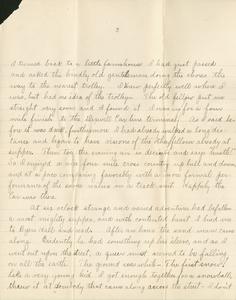 2
I turned back to a little farmhouse I had just passed
and asked the kindly old gentleman doing the chores the
way to the nearest trolley. I knew perfectly well where I
was, but had no idea of the trolleys. The old fellow put me
straight very soon and I found it I was in for a four
mile finish to the car line terminal. As I said be-
fore it was dark, furthermore I had already walked a long dis-
tance and began to have visions of the
supper. Then too the evening air
So I enjoyed a nice four mile cross country up hill and down,
and at a pace comparing favorably with a more formal per-
formance of the same nature on a track suit. Happily the
car was there.
At six oclock strange and varied adventures had befallen
a most mighty supper, and with contented heart I had
to and beads. After an hour the sand man came
along. Evidently he had something up his sleeve, and as I
went out upon the street, a queer mist seemed to be falling
on all the earth. The ground was white. The first snow!
Like a very young kid I got enough together for a snowball,
threw it at somebody that came along across the street. I don't